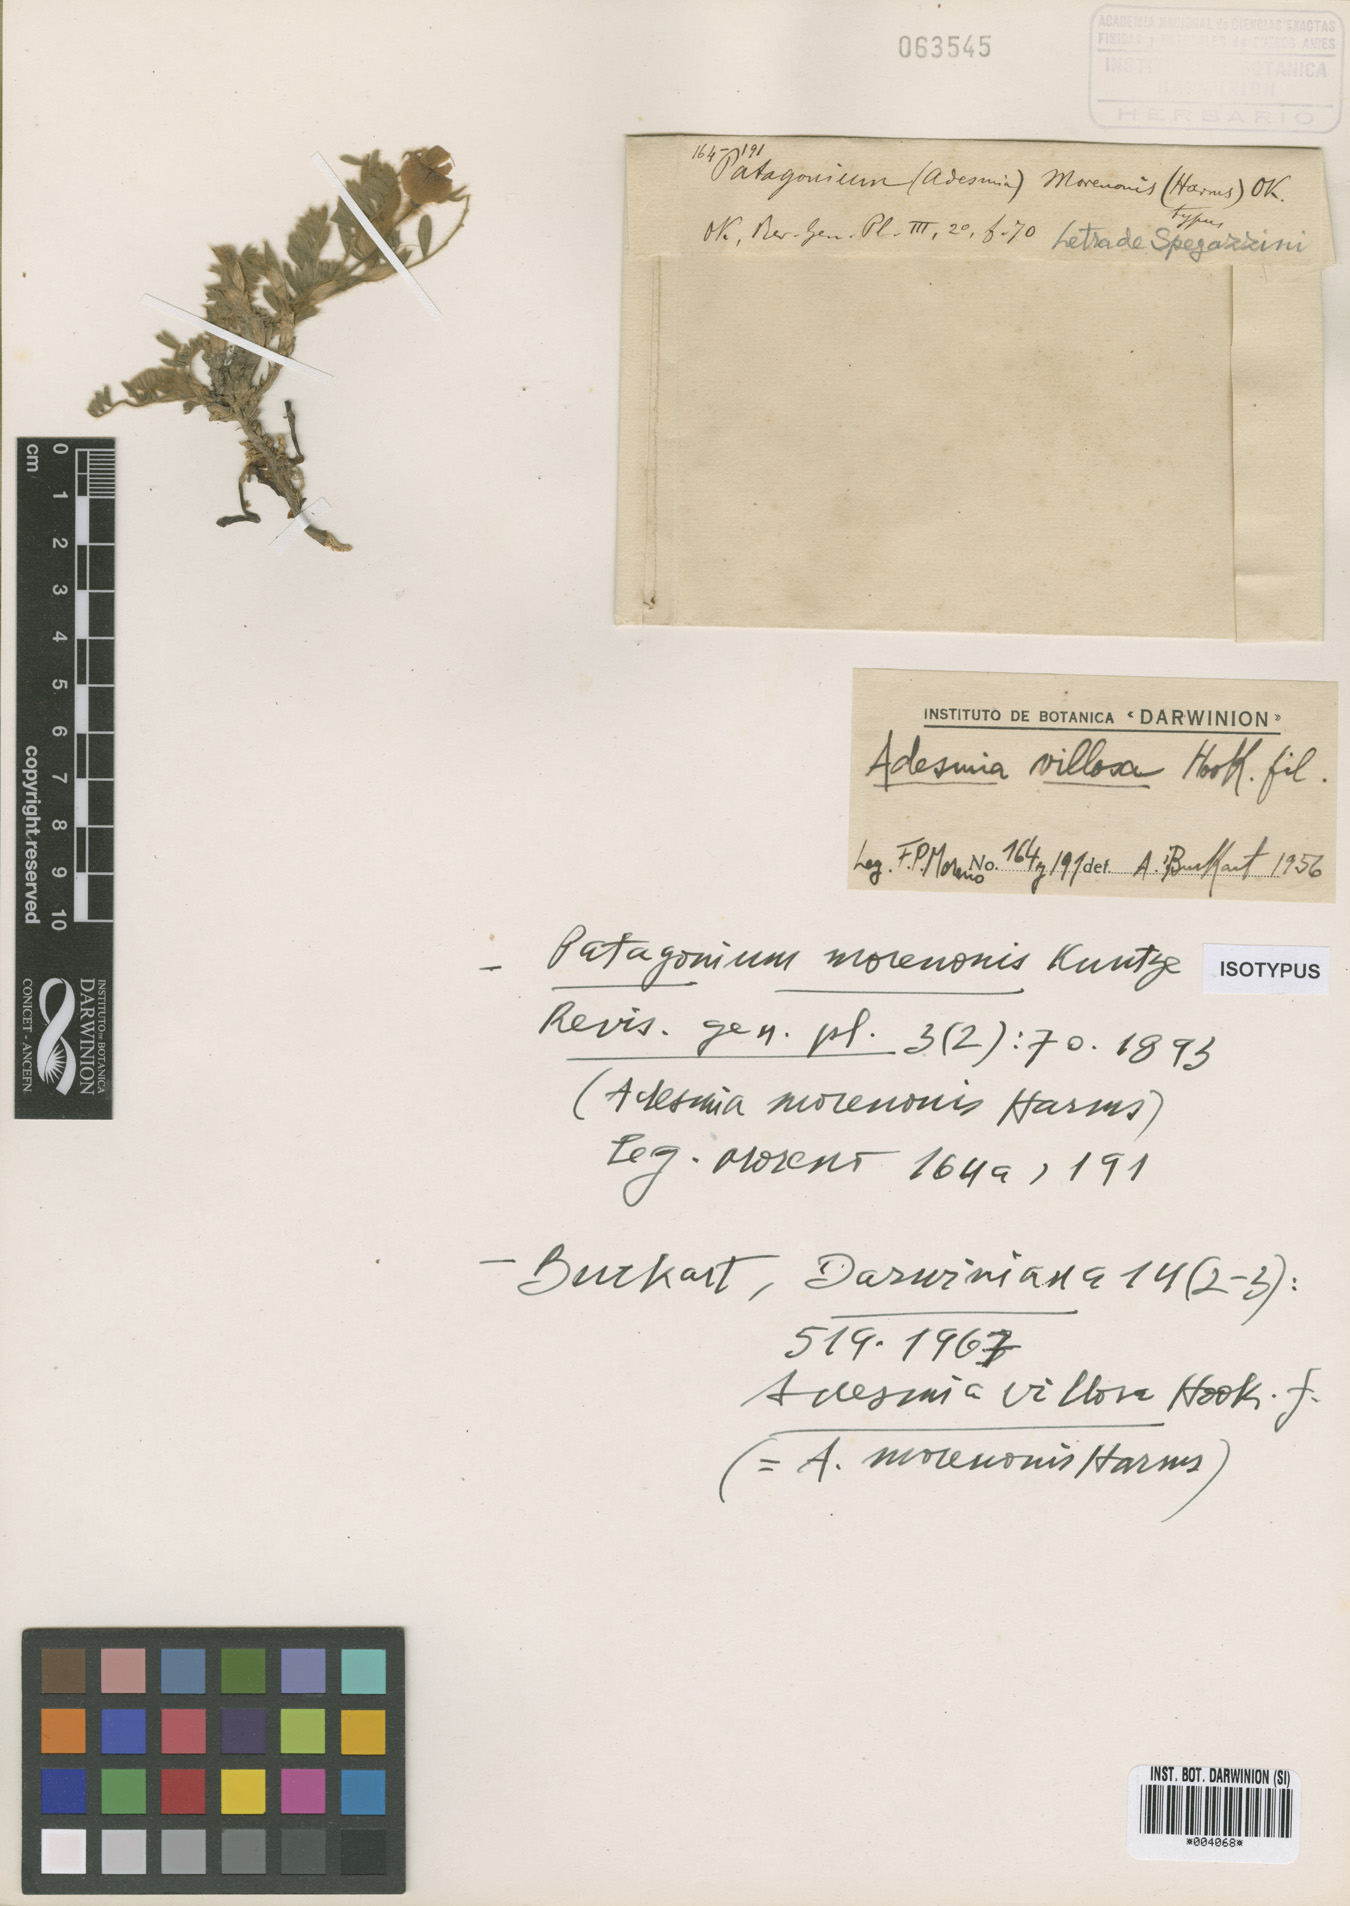 063545
ACADEMIA NACIONAL de CIENCIAS EXACTAS
FISICAS y NATURALES de BUENOS AIRES
INSTITUTO de BOTANICA
DARWINION
HERBARIO
164-191
Patagonium (Adesmia) Morenonis (Harms) OK.
typus
OK, Rev. Gen. Pl. III, 20, f. 70 Letra de Spegazzini
INSTITUTO DE BOTANICA «DARWINION»
Adesmia villosa Hook. fil.
Leg. F.P. Moreno No. 164 y 191 det. A. Burkart 1956
- Patagonium morenonis Kuntze
ISOTYPUS
Revis. gen. pl. 3(2):70. 1893
(Adesmia morenonis Harms)
Leg. Moreno 164a, 191
- Burkart, Darwiniana 14(2-3):
519. 1967
Adesmia villosa Hook. f.
(= A. morenonis Harms)
cm 0 1 2 3 4 5 6 7 8 9 10
copyright reserved
INSTITUTO DE BOTANICA
DARWINION
CONICET - ANCEFN
INST. BOT. DARWINION (SI)
*004068*